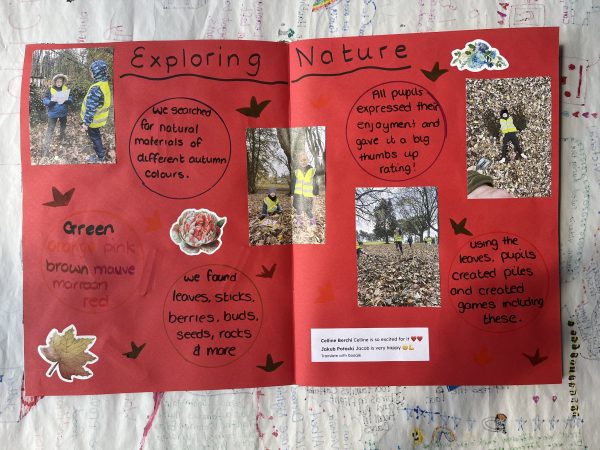 Exploring Nature
We searched
for natural
materials of
different autumn
colours.
Green
orange pink
brown mauve
marroon
red
We found
leaves, sticks,
berries, buds,
seeds, rocks
& more
All pupils
expressed their
enjoyment and
gave it a big
thumbs up
rating!
using the
leaves, pupils
created piles
and created
games including
these.
Celline Berchi Celline is so excited for it ❤️❤️
Jakub Potocki Jacob is very happy 😊💪
Translate with Google